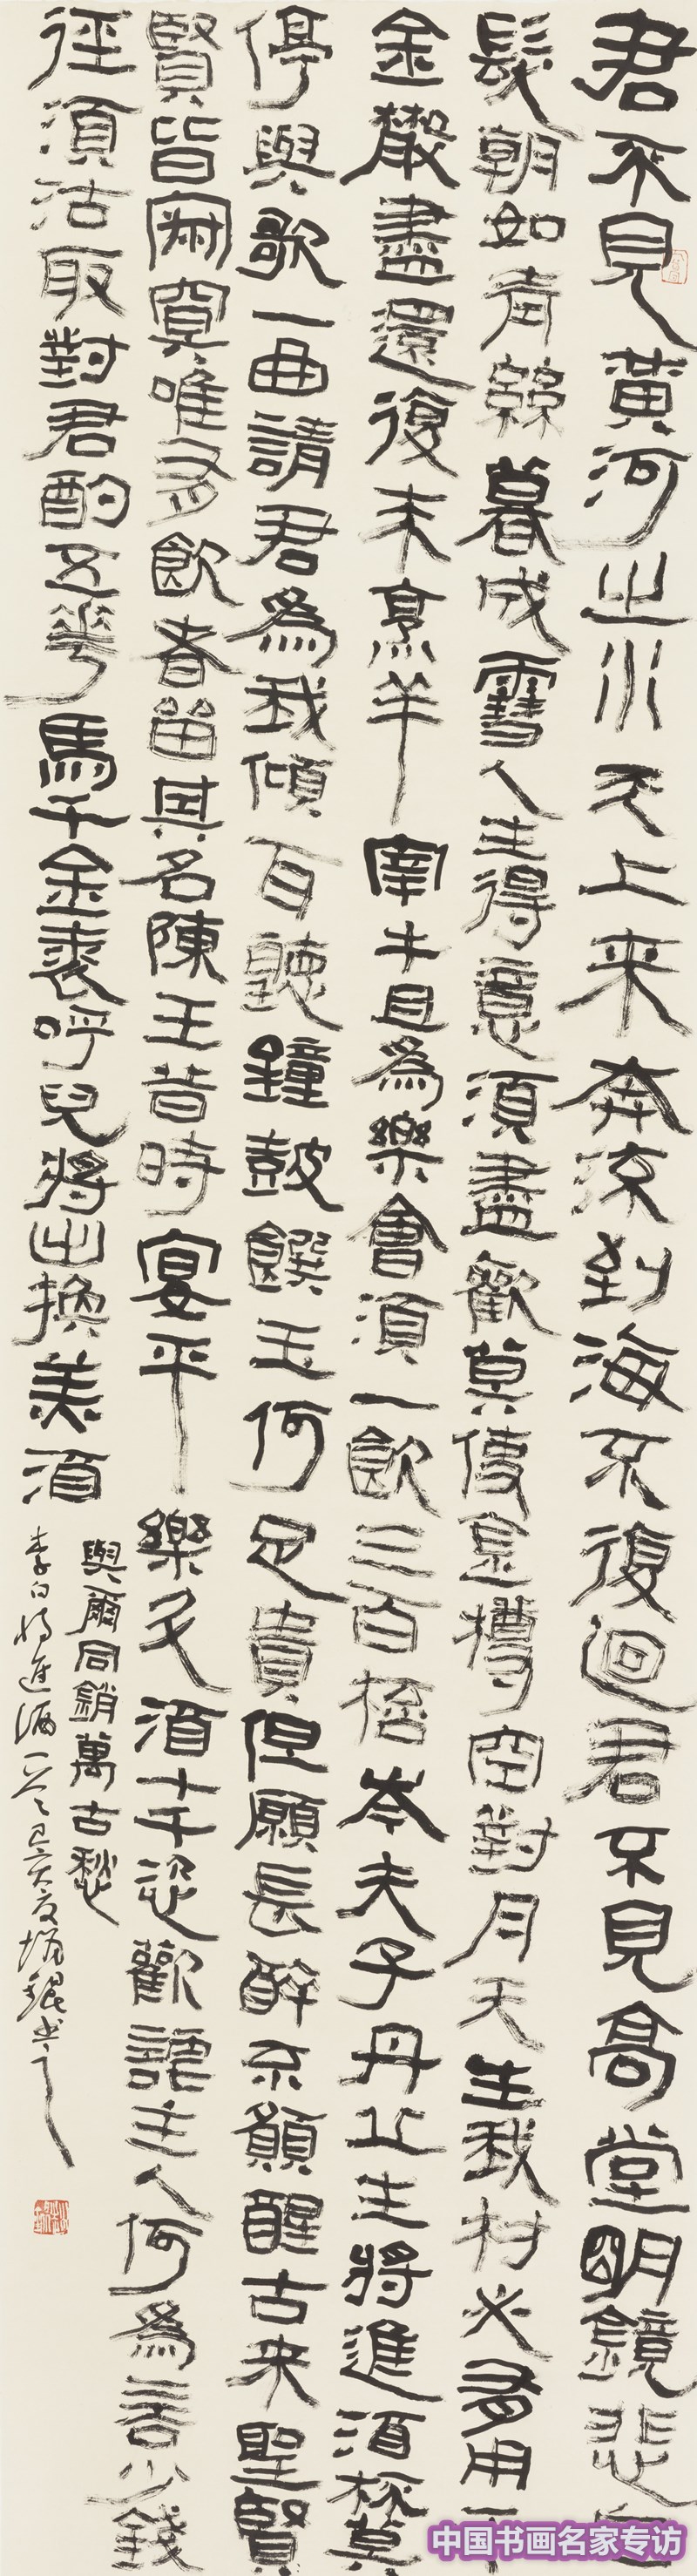 君不見黃河之水天上来奔流到海不復迴君不見高堂明鏡悲白
髮朝如青絲暮成雪人生得意須盡歡莫使金樽空對月天生我材必有用千
金散盡還復来烹羊宰牛且為樂會須一飲三百杯岑夫子丹丘生將進酒杯莫
停與歌一曲請君為我傾耳聽鐘鼓饌玉何足貴但願長醉不願醒古来聖賢
賢皆寂寞唯有飲者留其名陳王昔時宴平樂斗酒十千恣歡謔主人何為言少錢
徑須沽取對君酌五花馬千金裘呼兒將出換美酒
與爾同銷萬古愁
李白將進酒一首己亥夏
書
中国书画名家专访